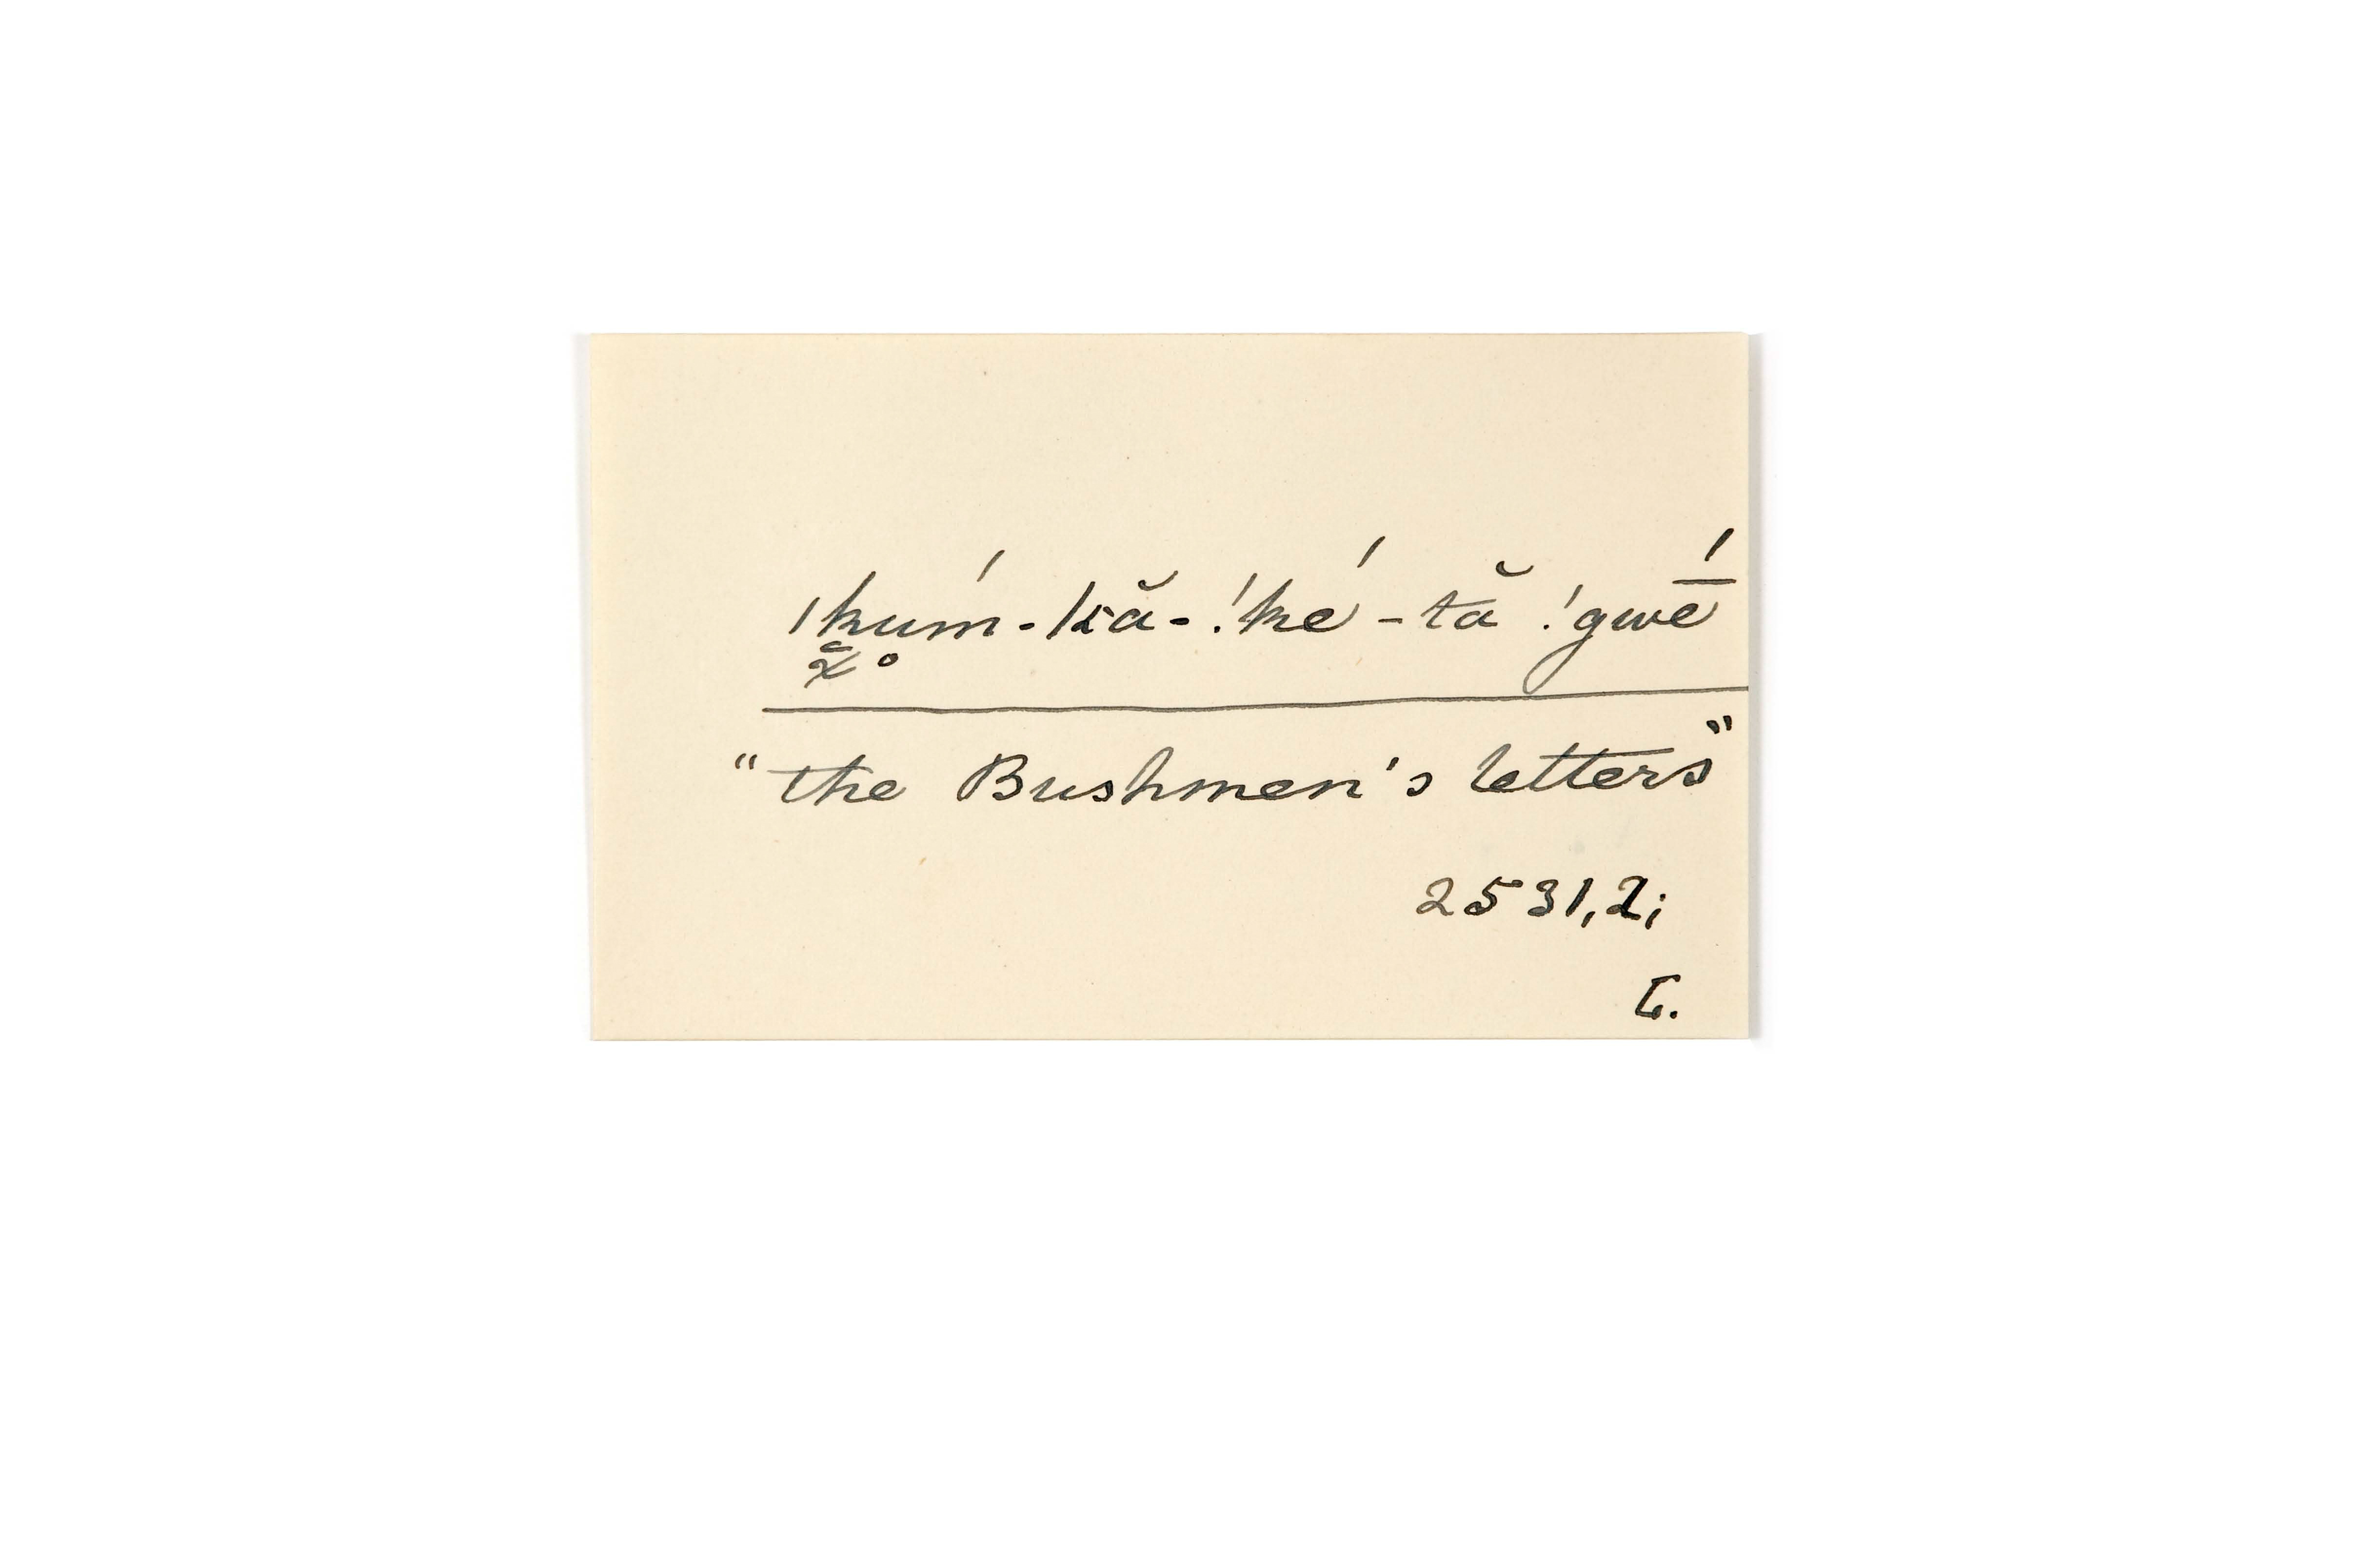 ǀkúm-kă-!ké-tă !gwḗ
"the Bushmen's letters"
2531,2;
G.